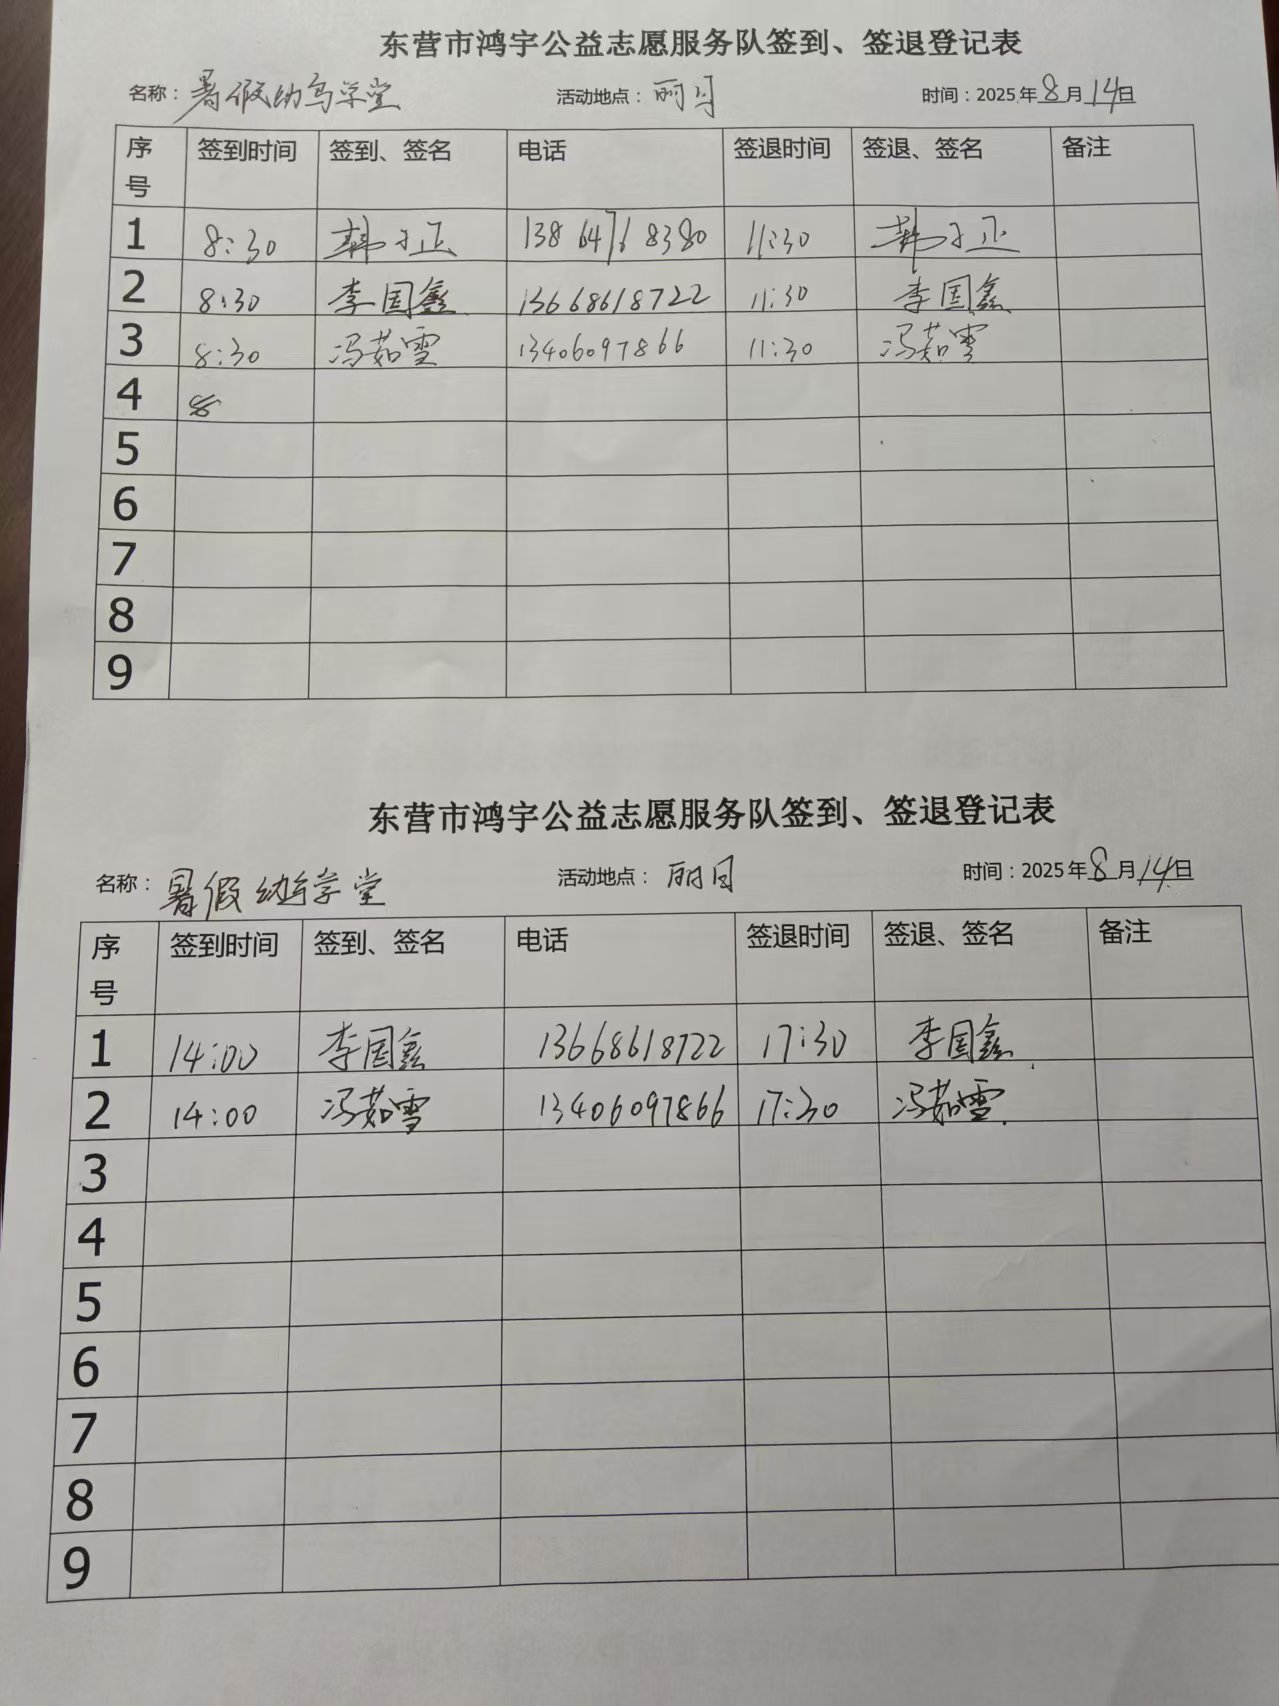 东营市鸿宇公益志愿服务队签到、签退登记表
名称：暑假幼鸟学堂 活动地点：丽日 时间：2025年8月14日
序号 签到时间 签到、签名 电话 签退时间 签退、签名 备注
1 8:30 韩子正 13864768380 11:30 韩子正
2 8:30 李国鑫 13668618722 11:30 李国鑫
3 8:30 冯茹雪 13406097866 11:30 冯茹雪
4
5
6
7
8
9
东营市鸿宇公益志愿服务队签到、签退登记表
名称：暑假幼学堂 活动地点：丽日 时间：2025年8月14日
序号 签到时间 签到、签名 电话 签退时间 签退、签名 备注
1 14:00 李国鑫 13668618722 17:30 李国鑫
2 14:00 冯茹雪 13406097866 17:30 冯茹雪
3
4
5
6
7
8
9